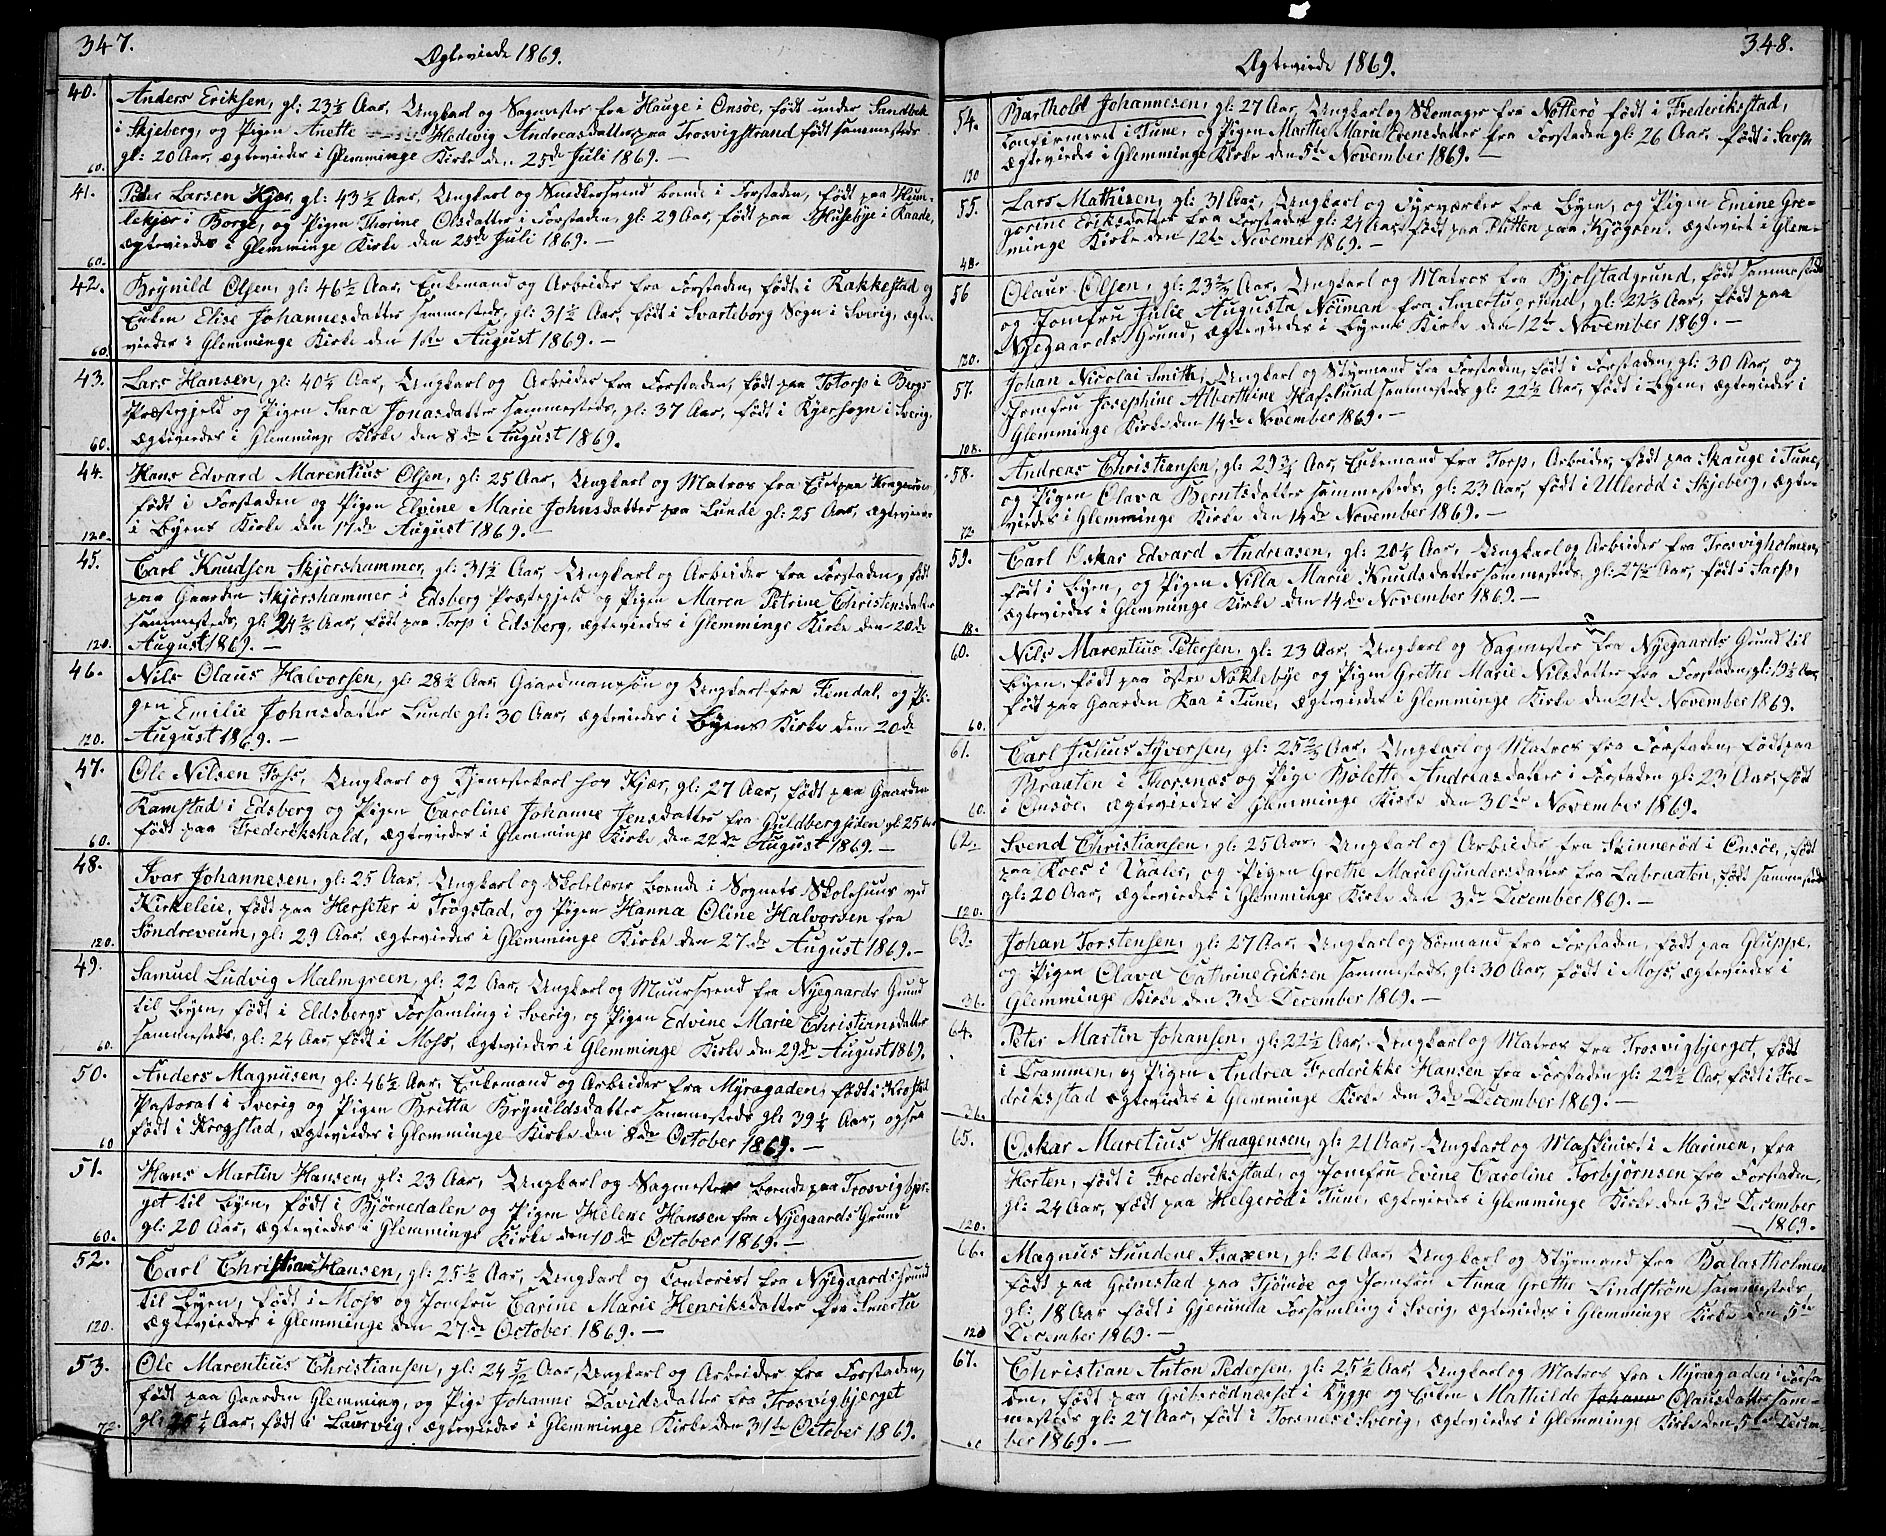 347.
Ægteviede 1869.
40.
Anders Eriksen, gl: 23½ Aar, Ungkarl og Sagmester fra Hauge i Onsöe, født under Sandbek
i Skjeberg, og Pigen Anette Hedevig Andreasdatter paa Trosvigstrand født sammesteds
gl: 20 Aar, ægteviedes i Glemminge Kirke den 25de Juli 1869. —
60.
41.
Peder Larsen Kjær, gl: 43½ Aar, Ungkarl og Snedkersvend boende i Forstaden, født paa Hum-
lekjær i Borge, og Pigen Thorine Olsdatter i Forstaden, gl: 29 Aar, født paa Husebye i Raade,
ægteviedes i Glemminge Kirke den 25de Juli 1869. —
60.
42.
Brynild Olsen, gl: 46½ Aar, Enkemand og Arbeider fra Forstaden, født i Rakkestad og
Enken Elise Johannesdatter sammesteds, gl: 31½ Aar, født i Svarteborg Sogn i Sverig, ægte-
viedes i Glemminge Kirke den 1ste August 1869. —
60.
43.
Lars Hansen, gl: 40½ Aar, Ungkarl og Arbeider fra Forstaden, født paa Totorp i Bergs
Præstegjeld og Pigen Sara Jonasdatter sammesteds, gl: 37 Aar, født i Kyersogn i Sverig.
ægteviedes i Glemminge Kirke den 8de August 1869.
60.
44.
Hans Edvard Marentius Olsen, gl: 25 Aar, Ungkarl og Matros fra paa Kragerøen,
født i Forstaden og Pigen Elvine Marie Johnsdatter paa Lunde gl: 25 Aar, ægteviedes
i Byens Kirke den 17de August 1869. —
120.
45.
Carl Knudsen Skjörshammer, gl: 31½ Aar, Ungkarl og Arbeider fra Forstaden, født
paa Gaarden Skjörshammer i Edsberg Præstegjeld og Pigen Maren Petrine Christensdatter
sammesteds, gl: 24⅔ Aar, født paa Torp i Edsberg, ægteviedes i Glemminge Kirke den 20de
August 1869. —
120.
46.
Nils Olaus Halvorsen, gl: 28½ Aar, Gaardmandssøn og Ungkarl fra Femdal, og Pi-
gen Emilie Johnsdatter Lunde gl: 30 Aar, ægteviedes i Byens Kirke den 20de
August 1869. —
120.
47.
Ole Nilsen Foss, Ungkarl og Tjenestekarl hos Kjær, gl: 27 Aar, født paa Gaarden
Kamstad i Edsberg og Pigen Caroline Johanne Jensdatter fra Guldbergsiden gl: 25 Aar
født paa Frederikshald, ægteviedes i Glemminge Kirke den 22de August 1869. —
60.
48.
Ivar Johannesen, gl: 25 Aar, Ungkarl og Skolelærer boende i Sognets Skolehuus ved
Kirkeleie, født paa Herseter i Trögstad, og Pigen Hanna Oline Halvorsen fra
Söndreveum, gl: 29 Aar, ægteviedes i Glemminge Kirke den 27de August 1869. —
120.
49.
Samuel Ludvig Malmgreen, gl: 22 Aar, Ungkarl og Muursvend fra Nyegaards Grund
til Byen, født i Eldsbergs Forsamling i Sverig, og Pigen Edvine Marie Christiansdatter
sammesteds, gl: 24 Aar, født i Moss, ægteviedes i Glemminge Kirke den 29de August 1869.
60.
50.
Anders Magnusen, gl: 46½ Aar, Enkemand og Arbeider fra Myragaden, født i Krogstad
Pastorat i Sverig og Pigen Britta Brynildsdatter sammesteds gl: 39½ Aar, ogsaa
født i Krogstad, ægteviedes i Glemminge Kirke den 8de October 1869. —
60
51.
Hans Martin Hansen, gl: 23 Aar, Ungkarl og Sagmester boende paa Trosvigbjer-
get til Byen, født i Bjørnedalen og Pigen Helene Hansen fra Nyegaards Grund
gl: 20 Aar, ægteviedes i Glemminge Kirke den 10de October 1869. —
60.
52.
Carl Christian Hansen, gl: 25½ Aar, Ungkarl og Contorist fra Nyegaards Grund
til Byen, født i Moss og Jomfru Carine Marie Henriksdatter fra Smerta
ægteviedes i Glemminge den 27de October 1869. —
120.
53.
Ole Marentius Christiansen, gl: 24 5/12 Aar, Ungkarl og Arbeider fra Forstaden,
født paa Gaarden Glemming, og Pige Johanne Davidsdatter fra Trosvigbjerget
gl: 25½ Aar, født i Laurvig, ægteviedes i Glemminge Kirke den 31te October 1869.
72.
348.
Ægteviede 1869.
54.
Barthold Johannesen, gl: 27 Aar, Ungkarl og Skomager fra Nötterö født i Frederiksstad,
confirmeret i Tune, og Pigen Marthe Marie Evensdatter fra Forstaden gl: 26 Aar, født i Sarpsb
ægteviedes i Glemminge Kirke den 5te November 1869. —
130
55.
Lars Mathisen, gl: 31 Aar, Ungkarl og Fyrværker fra Byen, og Pigen Emine Gre-
gorine Eriksdatter fra Forstaden gl: 24 Aar, født paa Flitten paa Kjøgöen. ægteviet i Glem-
minge Kirke den 12te Novemer 1869. —
48.
56
Olaus Olsen, gl: 23⅔ Aar, Ungkarl og Matros fra Bjølstadgrund, født sammesteds
og Jomfru Julie Augusta Nöiman fra Smertögrund, gl: 22⅔ Aar, født paa
Nyegaards Grund, ægteviedes i Byens Kirke den 12te November 1869. —
120.
57.
Johan Nicolai Smith, Ungkarl og Styrmand fra Forstaden, født i Forstaden, gl: 30 Aar, og
Jomfru Josephine Alberthine Hafslund sammesteds gl: 22½ Aar, født i Byen, ægteviedes i
Glemminge Kirke den 14de November 1869. —
108.
58.
Andreas Christiansen, gl: 29¾ Aar, Enkemand fra Torp, Arbeider, født paa Skauge i Tune,
og Pigen Olava Berntsdatter sammesteds, gl: 23 Aar, født i Ulleröd i Skjeberg, ægte-
viedes i Glemminge Kirke den 14de November 1869. —
72
59.
Carl Oskar Edvard Andreasen, gl: 20¼ Aar, Ungkarl og Arbeider fra Trosvigholmen,
født i Byen, og Pigen Nilla Marie Knudsdatter sammesteds, gl: 27½ Aar, født i Sarp,
ægteviedes i Glemminge Kirke den 14de November 1869. —
18.
60.
Nils Marentius Petersen, gl: 23 Aar, Ungkarl og Sagmester fra Nyegaards Grund til
Byen, født paa östre Nöklebye og Pigen Grethe Marie Nilsdatter fra Forstaden, gl: 19½ Aar,
født paa Gaarden Kaa i Tune, ægteviedes i Glemminge Kirke den 21de November 1869.
60.
61.
Carl Julius Syversen, gl: 25⅔ Aar, Ungkarl og Matros fra Forstaden, født paa
Braaten i Thorsnæs og Pige Bolette Andreasdatter i Forstaden gl: 23 Aar, født
i Onsöe, ægteviedes i Glemminge Kirke den 30de November 1869.
60.
62.
Svend Christiansen, gl: 25 Aar, Ungkarl og Arbeider fra Skinneröd i Onsöe, født
paa Roes i Vaaler, og Pigen Grethe Marie Gundersdatter fra Labraaten, født sammesteds
gl: 20 Aar, ægteviedes i Glemminge Kirke den 3de December 1869. —
120.
63.
Johan Torstensen, gl: 27 Aar, Ungkarl og Sömand fra Forstaden, født paa Gluppe,
og Pigen Olava Cathrine Eriksen sammesteds, gl: 30 Aar, født i Moss, ægteviedes i
Glemminge Kirke den 3de December 1869. —
36.
64.
Peter Martin Johansen, gl: 22½ Aar, Ungkarl og Matros fra Trosvigbjerget, født
i Drammen, og Pigen Andrea Frederikke Hansen fra Forstaden gl: 22½ Aar, født i Fre-
driksstad ægteviedes i Glemminge Kirke den 3de December 1869. —
36.
65.
Oskar Maretius Haagensen, gl: 21 Aar, Ungkarl og Maskinist i Marinen, fra
Horten, født i Frederiksstad, og Jomfru Evine Caroline Torbjörnsen fra Forstaden,
gl: 24 Aar, født paa Helgeröd i Tune, ægteviedes i Glemminge Kirke den 3de December
1869.
120.
66.
Magnus Sundene Isaxen, gl: 26 Aar, Ungkarl og Styrmand fra Balastholmen
født paa Grimstad paa Tjömöe og Jomfru Anna Grethe Lindström sammesteds
gl: 18 Aar født i Gjerunda Forsamling i Sverig, ægteviedes i Glemminge Kirke den 5te
December 1869. —
120
67.
Christian Anton Pedersen, gl: 25½ Aar, Ungkarl og Matros fra Myragaden i Forsta-
den, født paa Gribsrödnesset i Rygge og Enken Mathilde Johanne Olausdatter sam-
mesteds gl: 27 Aar, født i Torsnes i Sverig, ægteviedes i Glemminge Kirke den 5te Decem-
ber 1869. —
60